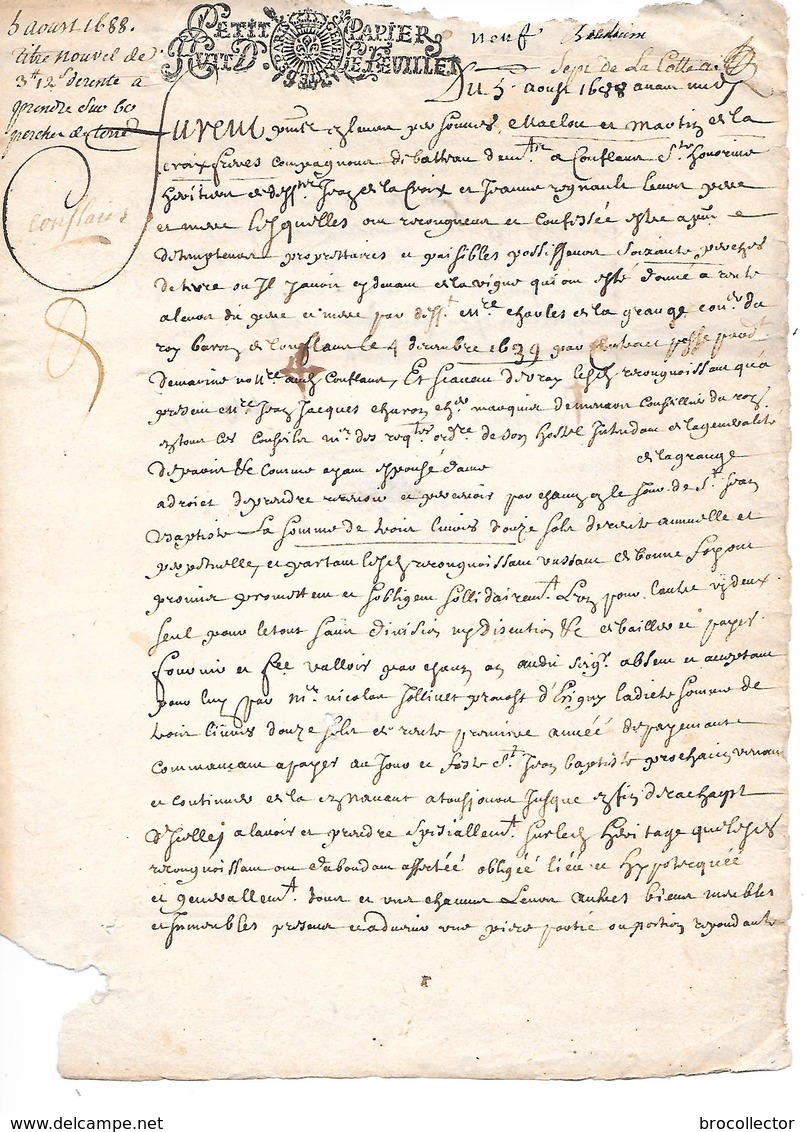 5 aoust 1688.
titre nouvel de
3# 12s de rente a
prendre sur 60
perches de terre
conflans
PETIT PAPIER
HUIT D. LE FEUILLET
GENERALITE PARIS
neuf
Du 5. aoust 1688 avant midy
Furent personnes Maclou et Martin de la
croix freres compagnons de batteau demt a Conflans Ste honorine
heritiers de deffunt Jean de la Croix et Jeanne regnault leurs pere
et mere lesquelles ont recongneu et confessé estre a pnt
detempteurs proprietaires et paisibles possesseurs soixante perches
de terre ou Il y avoit cy devant de la vigne qui ont esté donné a rente
a leurs dit pere et mere par deft. Mre charles de la grange coner du
roy baron de Conflans le 4 decembre 1639 par Contract passé pardt
Demarine nottre audt Conflans, Et
present Mre Jean Jacques charon cher marquis de menars Conseiller du roy
en tous ces Conseils Mr des reqtes ordre de son hostel Intendant de la generalité
de paris &c comme ayant espousé dame de la grange
a droict de prendre et percevoir par chacun an le jour de St Jean
Baptiste La somme de trois livres douze sols de rente annuelle et
perpetuelle, et partant lesd recongnoissants de bonne foy ont
promis promettent et sobligent sollidairement L'un pour lautre un deux
seul pour le tout sans division ny discution &c de bailler et payer
fournir et fre valloir par chacun an audit seigr absent et acceptant
pour luy par Mr nicolas Jollivet prevost d'Erigny ladicte somme de
trois livres douze sols de rente premiere année de payement
commancant a payer au Jour et feste St. Jean baptiste prochain venant
et continuer de la en avant a tousjours Jusque en fin de rachapt
d'Icelles a lavoir et prendre speciallemt. sur lesd heritage que lesd
recongnoissant ont d'abondant affectée obligée liée et hypotecquée
et generallemt. tous et uns chacuns leurs autres biens meubles
et Immeubles presens et advenir une piece partie ou portion repondante